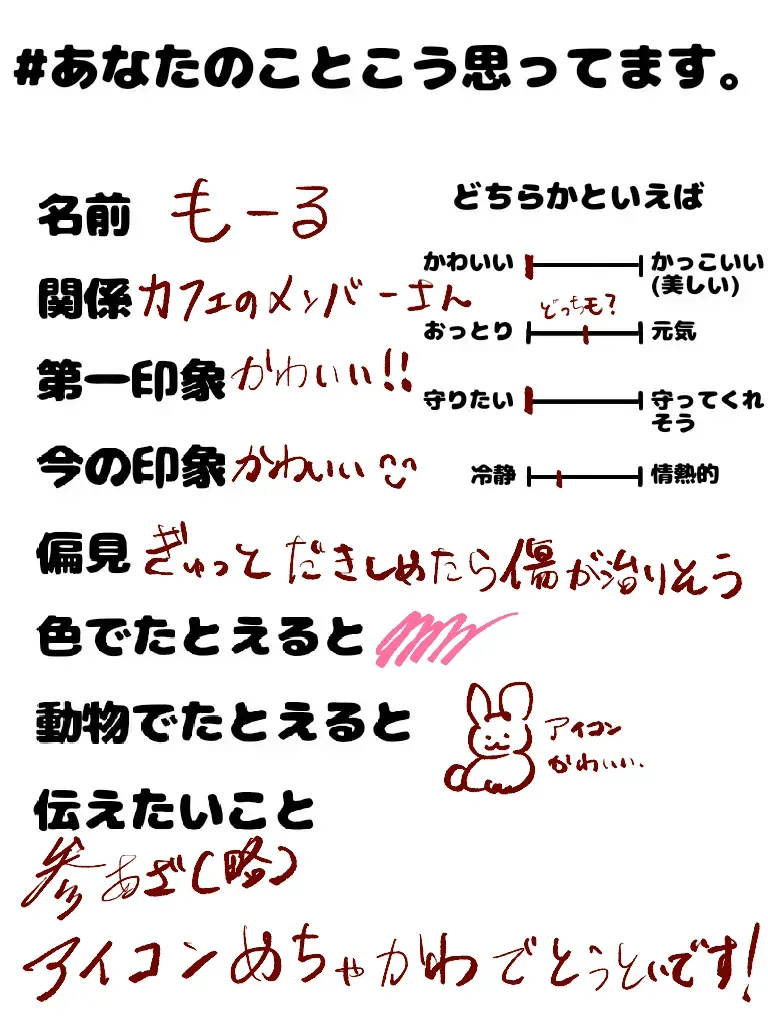 #あなたのことこう思ってます。
名前 もーる
関係 カフェのメンバーさん
第一印象 かわいい!!
今の印象 かわいい
偏見 ぎゅっとだきしめたら傷が治りそう
色でたとえると
動物でたとえると
アイコン
かわいい.
伝えたいこと
参あざ(略)
アイコンめちゃかわでとうといです!
どちらかといえば
かわいい かっこいい
(美しい)
どっちも?
おっとり 元気
守りたい 守ってくれ
そう
冷静 情熱的